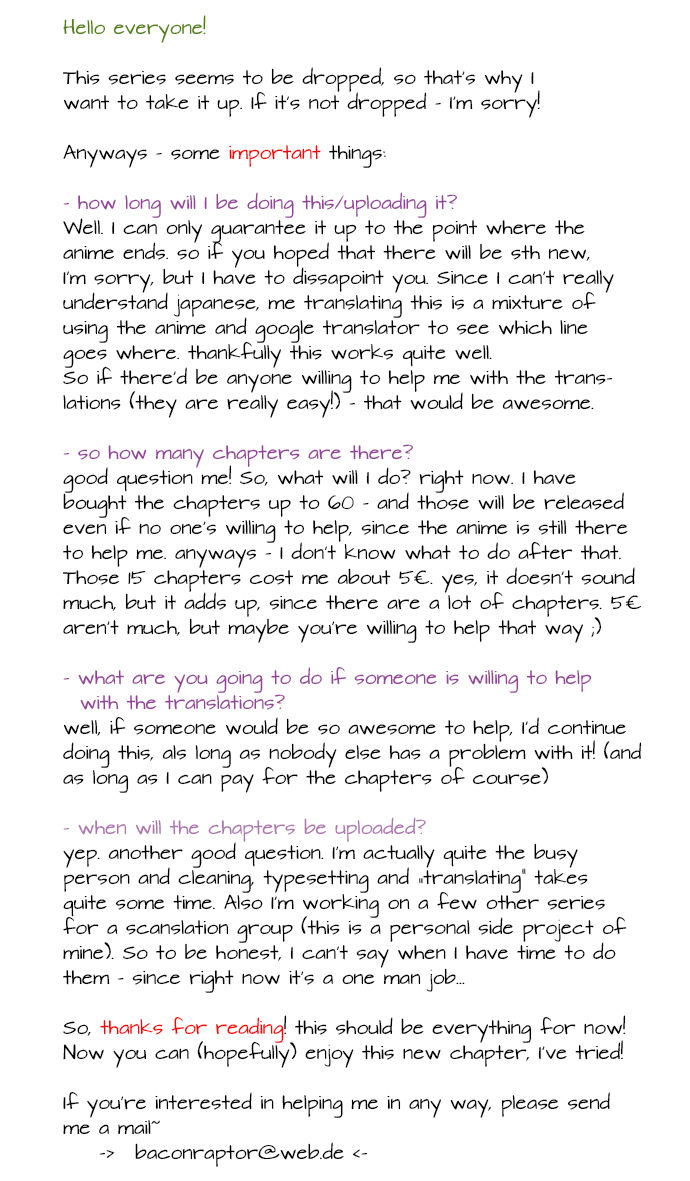 Hello everyone!
This series seems to be dropped, so that's why I
want to take it up. If it's not dropped - I'm sorry!
Anyways - some important things:
- how long will I be doing this/uploading it?
Well. I can only guarantee it up to the point where the
anime ends. so if you hoped that there will be sth new,
I'm sorry, but I have to dissapoint you. Since I can't really
understand japanese, me translating this is a mixture of
using the anime and google translator to see which line
goes where. thankfully this works quite well.
So if there'd be anyone willing to help me with the trans-
lations (they are really easy!) - that would be awesome.
- so how many chapters are there?
good question me! So, what will I do? right now. I have
bought the chapters up to 60 - and those will be released
even if no one's willing to help, since the anime is still there
to help me. anyways - I don't know what to do after that.
Those 15 chapters cost me about 5€. yes, it doesn't sound
much, but it adds up, since there are a lot of chapters. 5€
aren't much, but maybe you're willing to help that way ;)
- what are you going to do if someone is willing to help
with the translations?
well, if someone would be so awesome to help, I'd continue
doing this, als long as nobody else has a problem with it! (and
as long as I can pay for the chapters of course)
- when will the chapters be uploaded?
yep. another good question. I'm actually quite the busy
person and cleaning, typesetting and „translating" takes
quite some time. Also I'm working on a few other series
for a scanslation group (this is a personal side project of
mine). So to be honest, I can't say when I have time to do
them - since right now it's a one man job...
So, thanks for reading! this should be everything for now!
Now you can (hopefully) enjoy this new chapter, I've tried!
If you're interested in helping me in any way, please send
me a mail~
-> baconraptor@web.de <-